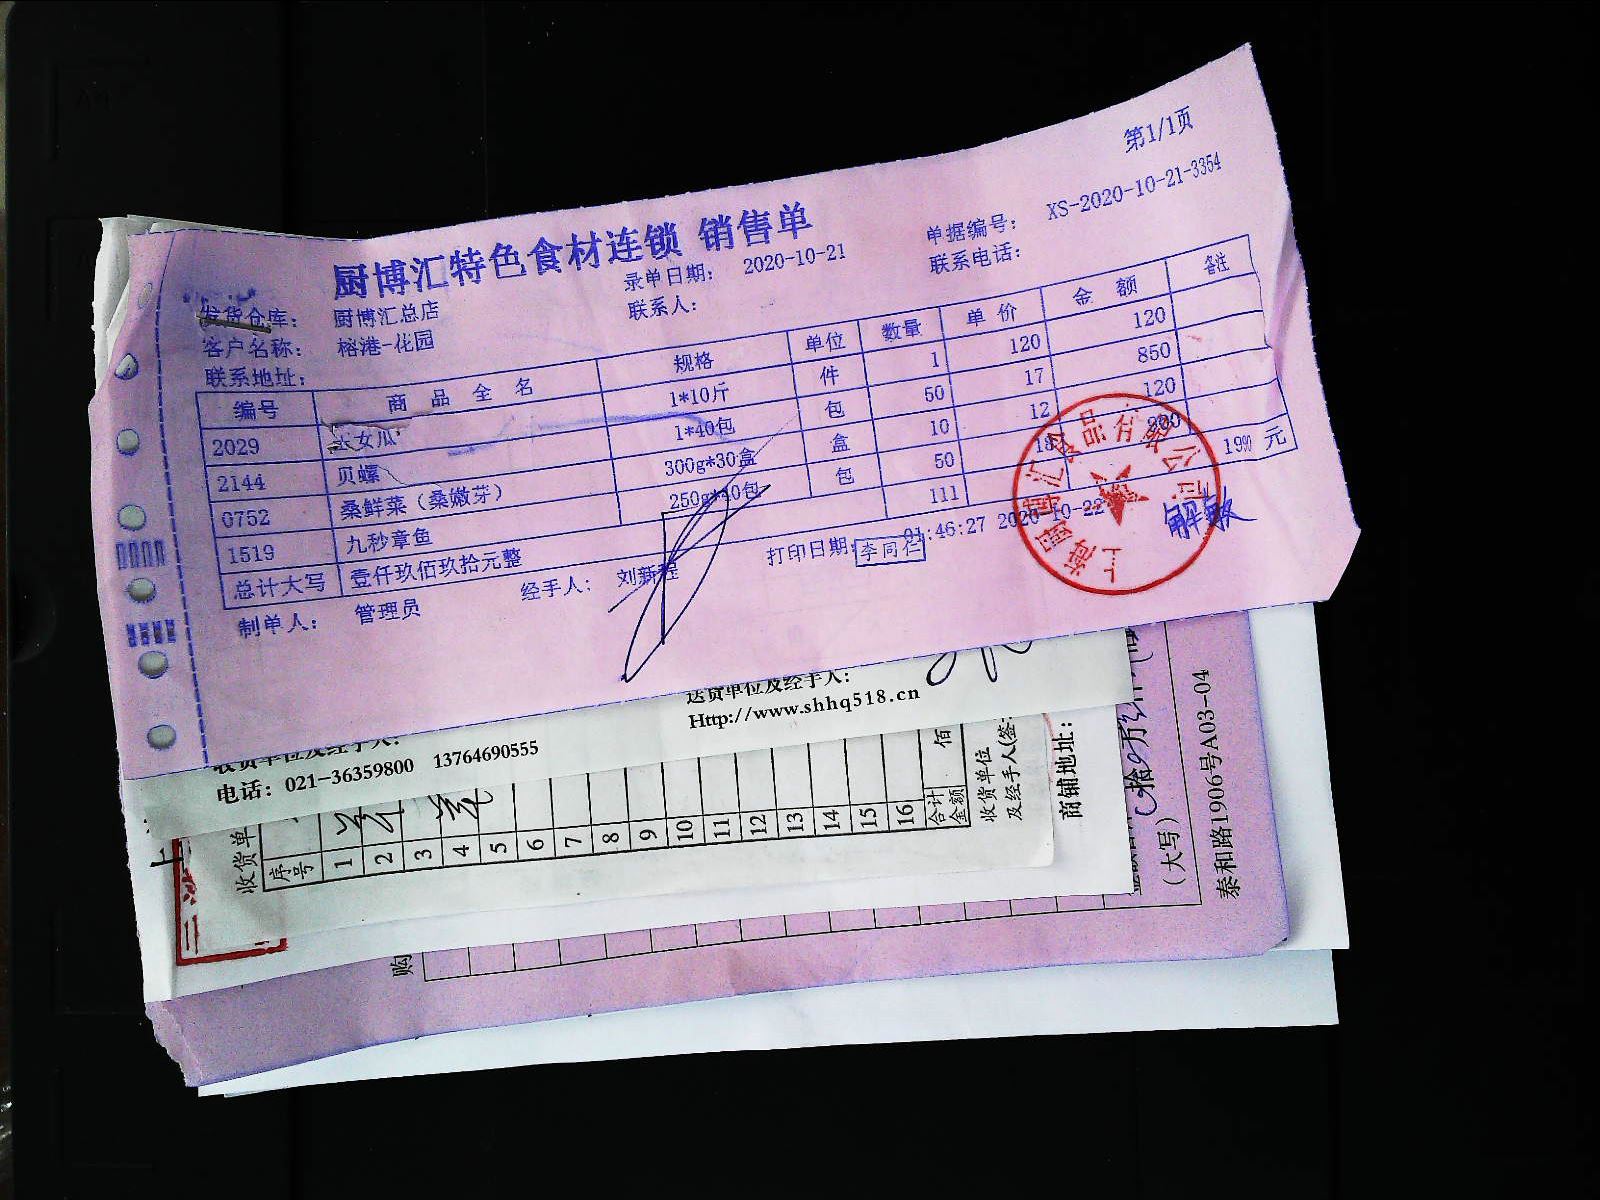 第1/1页
厨博汇特色食材连锁 销售单
录单日期: 2020-10-21
单据编号: XS-2020-10-21-3354
发货仓库: 厨博汇总店
联系人:
联系电话:
客户名称: 榕港-化园
联系地址:
编号 商品全名 规格 单位 数量 单价 金额 备注
2029 女瓜 1*10斤 件 1 120 120
2144 贝螺 1*40包 包 50 17 850
0752 桑鲜菜（桑嫩芽） 300g*30盒 盒 10 12 120
1519 九秒章鱼 250g*40包 包 50 18
总计大写 壹仟玖佰玖拾元整 111 元
制单人: 管理员
经手人: 刘新程
打印日期: 01:46:27 2020-10-22
李同仁
解敏
送货单位及经手人:
Http://www.shhq518.cn
收货单位及经手人:
电话: 021-36359800 13764690555
收货单
序号
1
2
3
4
5
6
7
8
9
10
11
12
13
14
15
16
合计金额 佰
收货单位及经手人(签
商铺地址:
购
(大写)
泰和路1906号A03-04